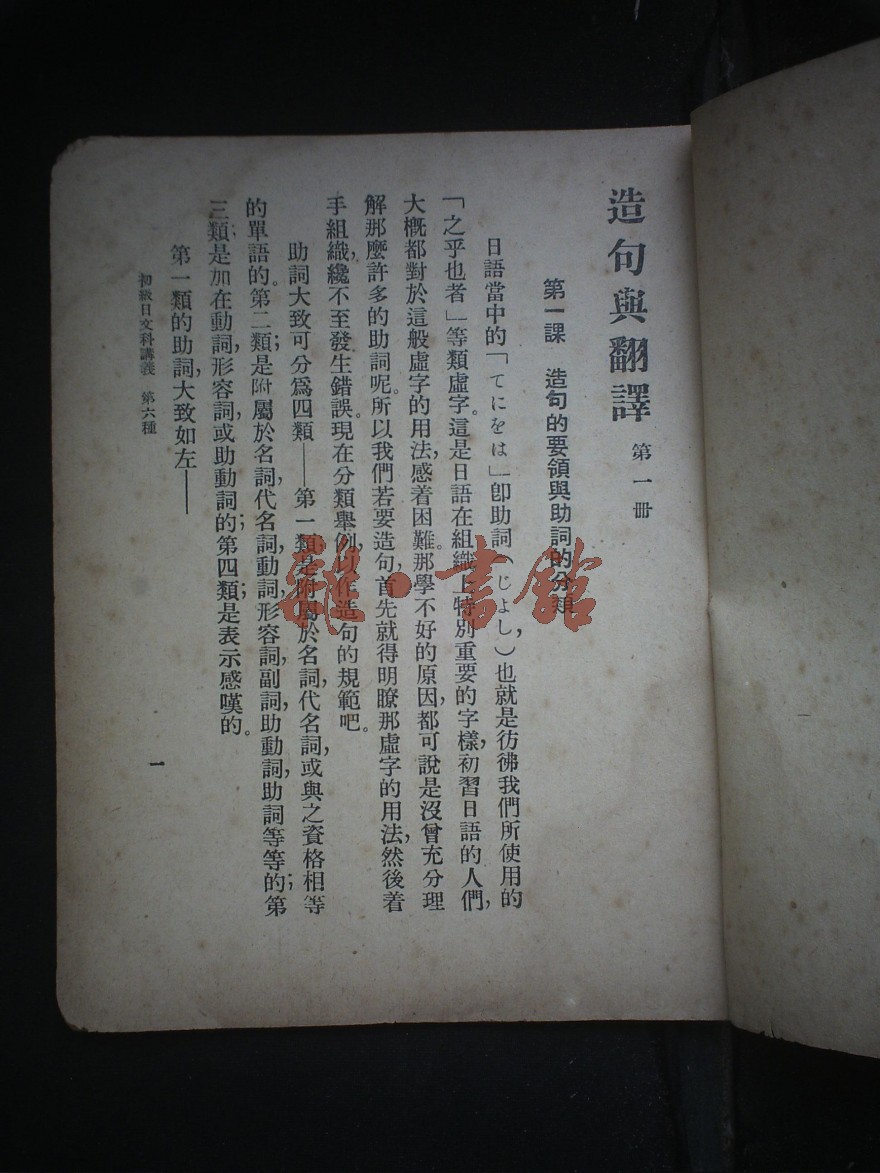 造句與翻譯 第一冊
第一課 造句的要領與助詞的分類
日語當中的「てにをは」卽助詞(じよし),也就是彷彿我們所使用的
「之乎也者」等類虛字。這是日語在組織上特別重要的字樣,初習日語的人們,
大概都對於這般虛字的用法,感着困難。那學不好的原因,都可說是沒曾充分理
解那麼許多的助詞呢。所以我們若要造句,首先就得明瞭那虛字的用法,然後着
手組織,纔不至發生錯誤。現在分類舉例,以作造句的規範吧。
助詞大致可分爲四類——第一類,是附屬於名詞,代名詞,或與之資格相等
的單語的。第二類;是附屬於名詞,代名詞,動詞,形容詞,副詞,助動詞,助詞等等的;第
三類;是加在動詞,形容詞,或助動詞的;第四類;是表示感嘆的。
第一類的助詞,大致如左——
初級日文科講義 第六種
一
雜·書館